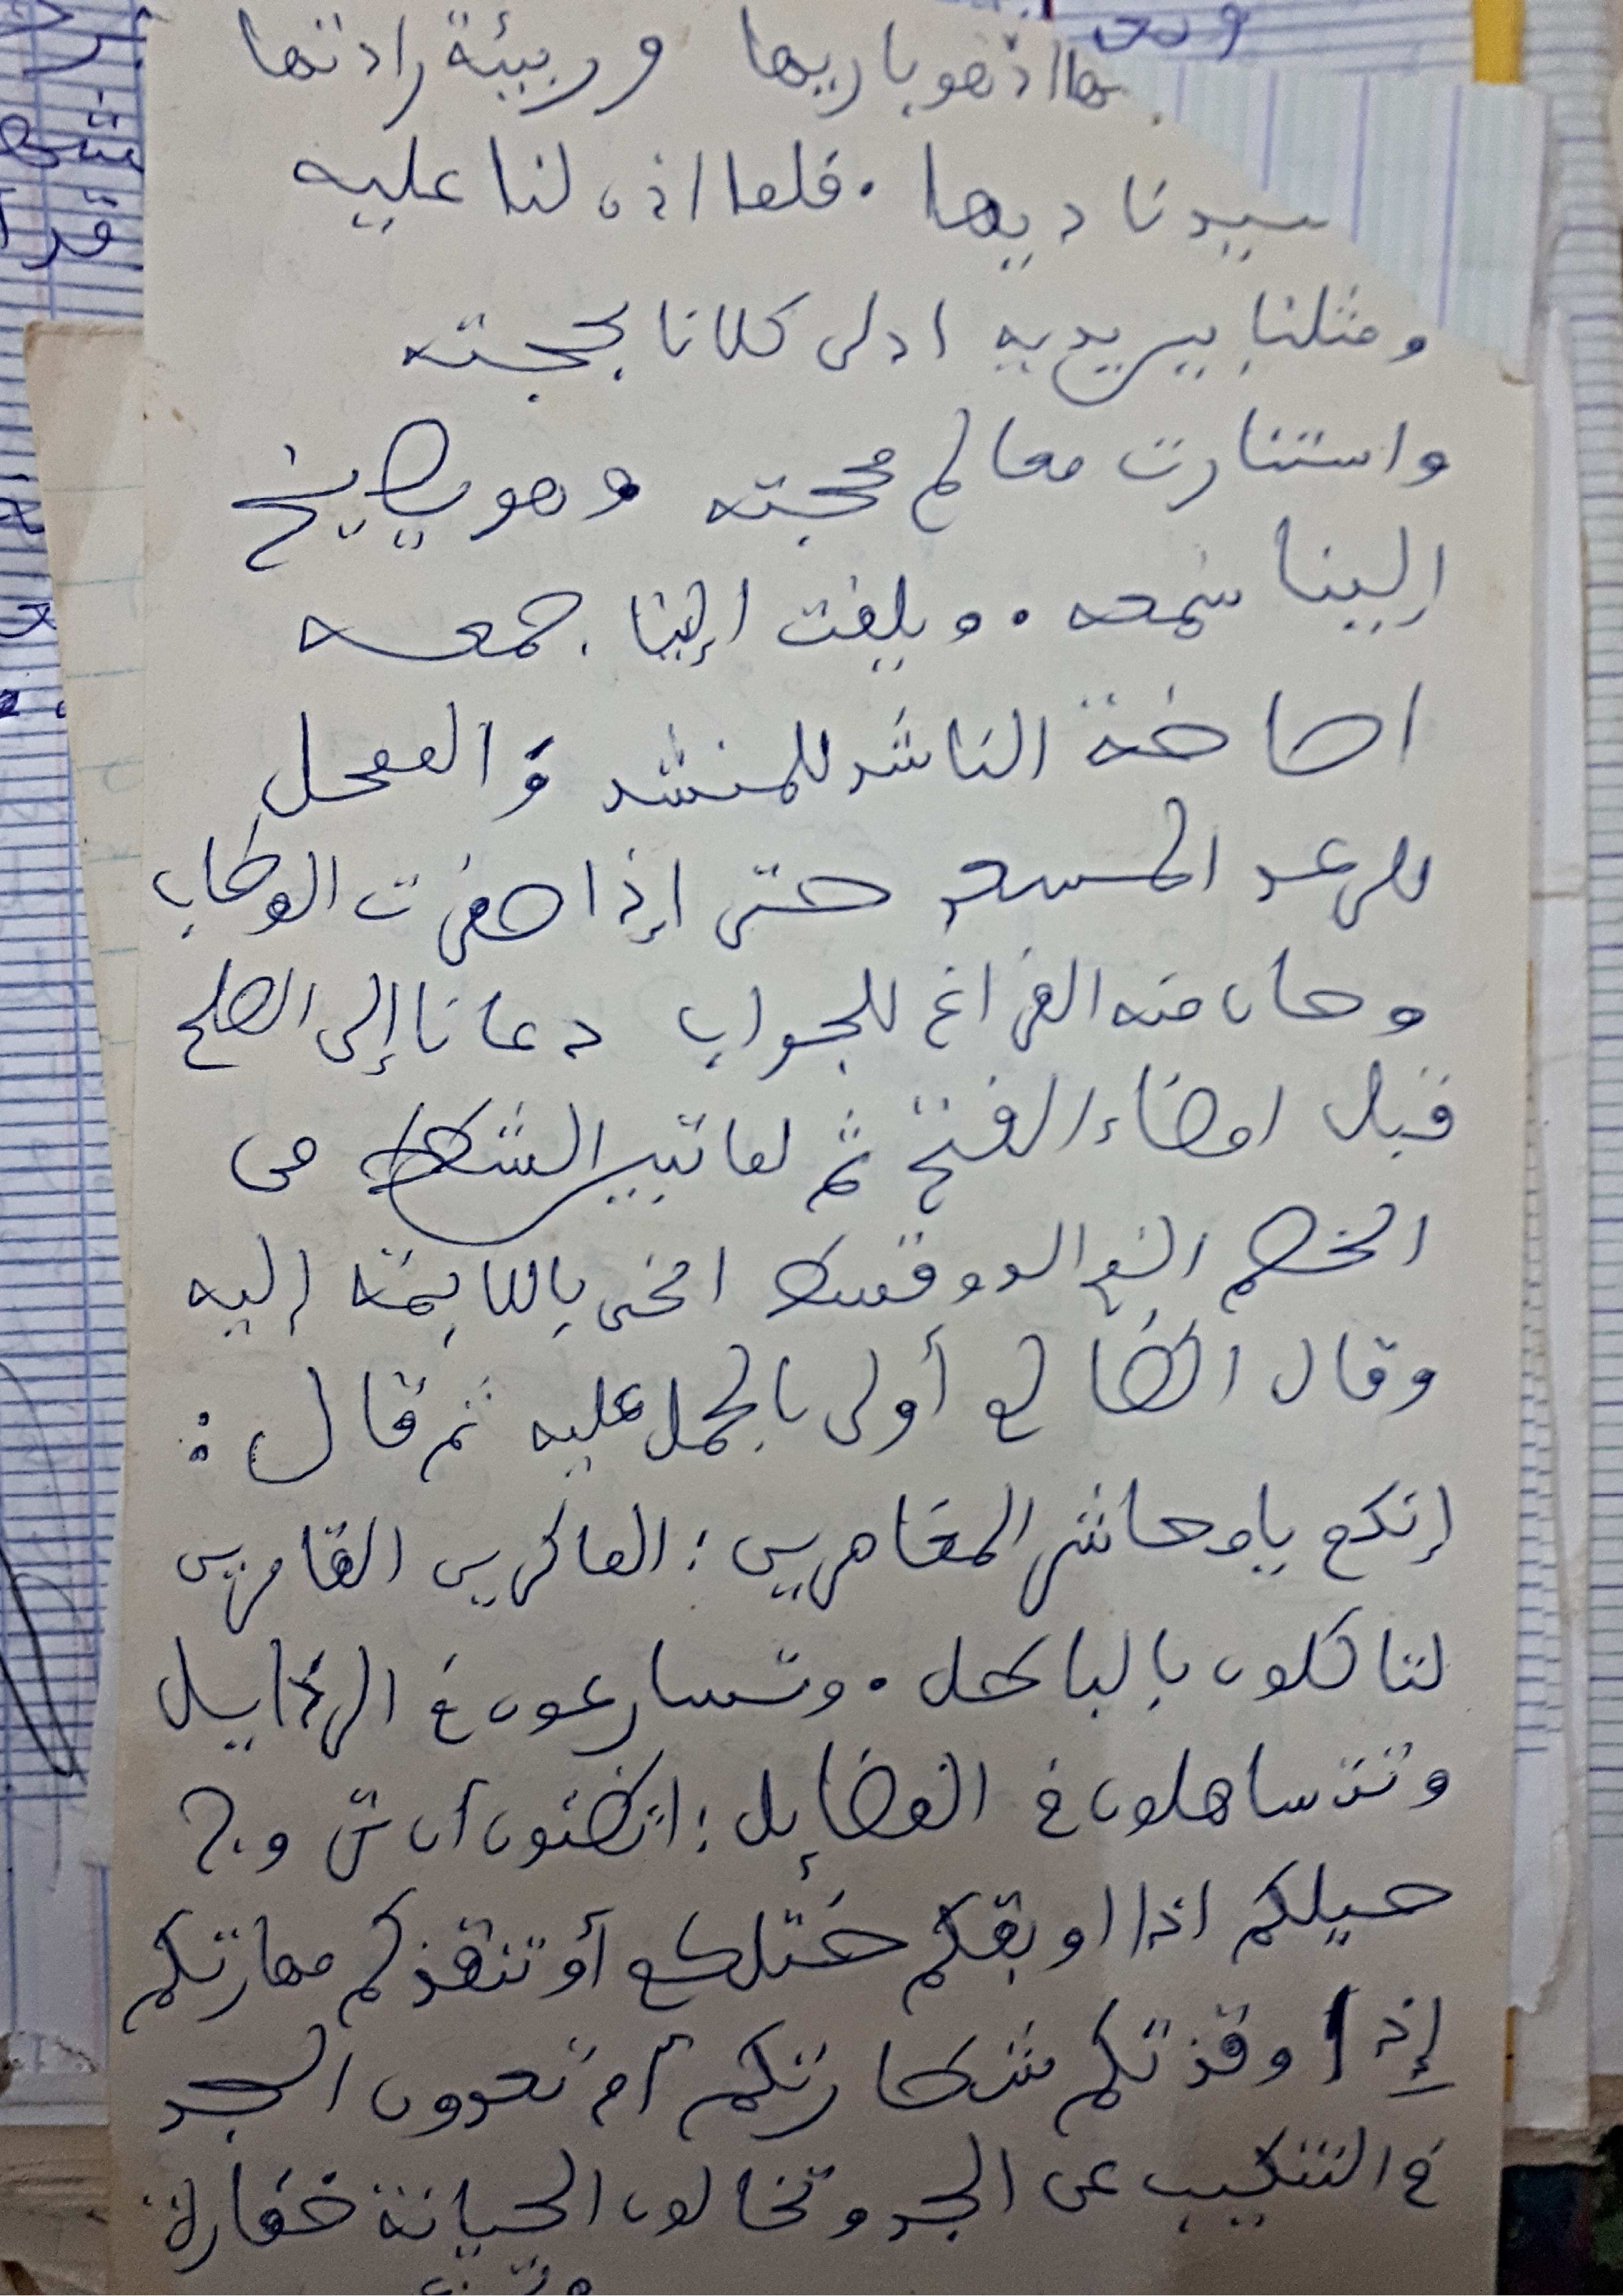 اذهو باريها وربيئة رادتها
سيدنا ديها . فلما اذن لنا عليه
ومثلنا بين يديه ادلى كلانا بحجته
واستنارت معالم محجته وهو يصيخ
إلينا سمعه . ويلفت إلينا جمعه
اصاخة الناشد للمنشد و الممحل
للرعد حتى إذا صفرت الوطاب
وحان منه الفراغ للجواب دعانا إلى الصلح
قبل امضاء الفتح ثم لما تبين الشطط من
الخصم وقسط انحى باللايمة إليه
وقال الظالم أولى بالحمل عليه ثم قال :
إنكم يا معاشر المقامرين : الماكرين القامرين
لتاكلون بالباطل . وتسارعون في الرذايل
وتتساهلون في الفضايل : اتظنون أن
حيلكم اذا اوبقكم ختلكم أو تنقذكم مهارتكم
إذا وقذتكم شطارتكم أم تعدون الجد
في التنكيب عن الجد وتخالون الخيانة خفارة